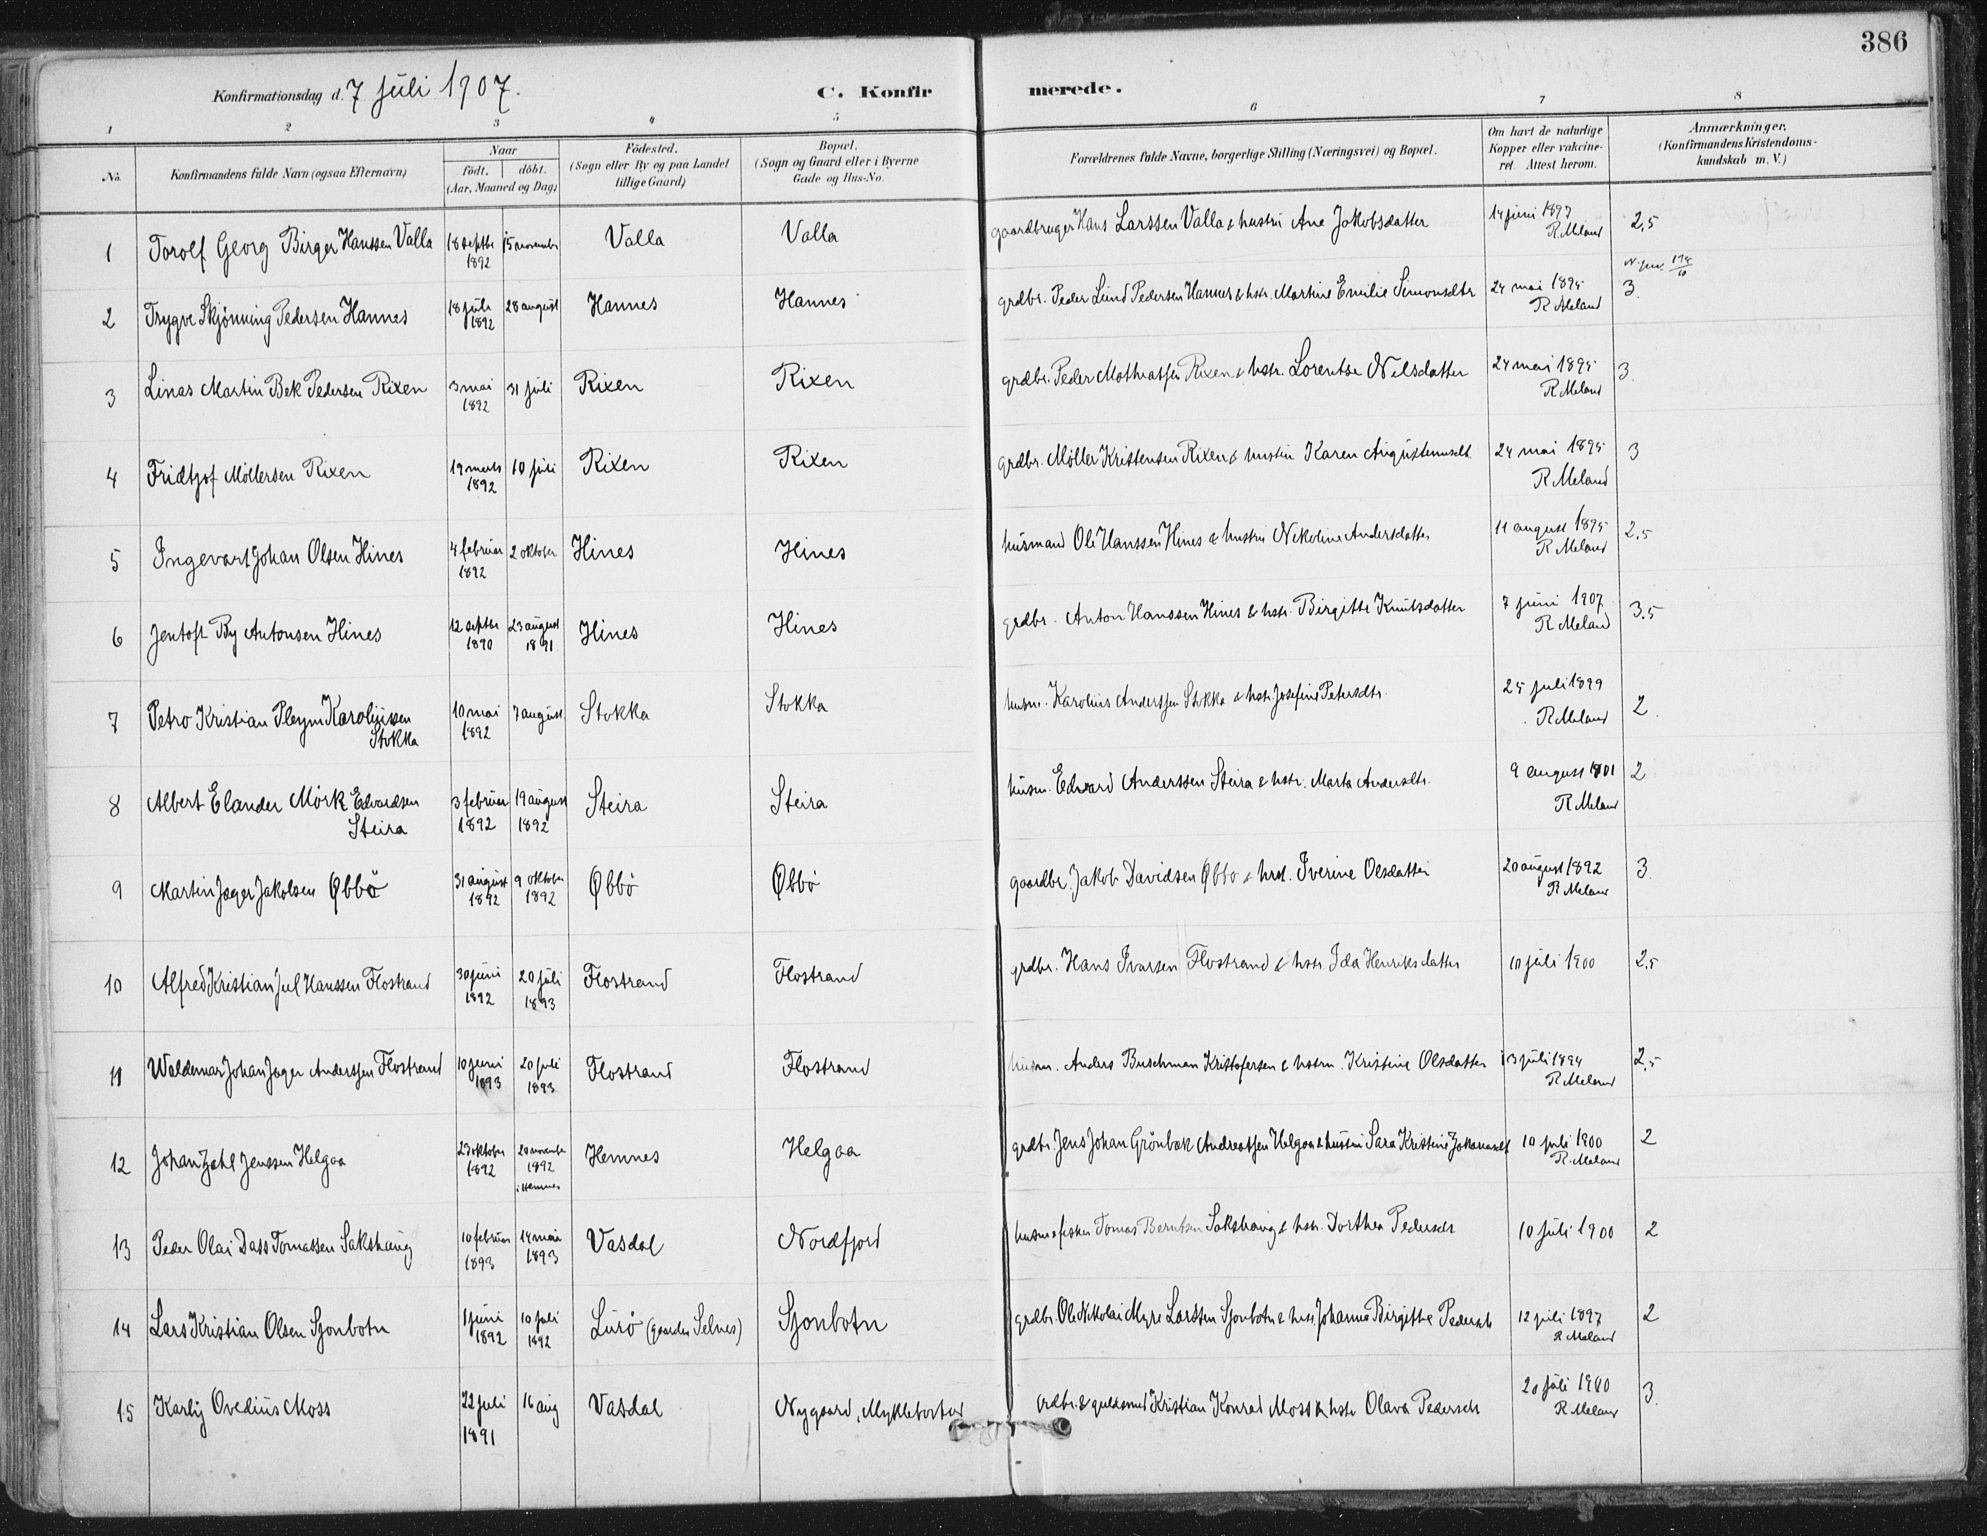 386
Konfirmationsdag d. 7 juli 1907.
C. Konfirmerede.
1 2 3 4 5 6 7 8
No. Konfirmandens fulde Navn (ogsaa Efternavn) Naar født, døbt. (Aar, Maaned og Dag) Fødested. (Sogn eller By og paa Landet tillige Gaard) Bopæl. (Sogn og Gaard eller i Byerne Gade og Hus-No. Forældrenes fulde Navne, borgerlige Stilling (Næringsvei) og Bopæl. Om havt de naturlige Kopper eller vakcineret. Attest herom. Anmærkninger. (Konfirmandens Kristendomskundskab m. V.)
1 Torolf Georg Birger Hanssen Valla 18 septbr 1892 15 novembr Valla Valla gaardbruger Hans Larssen Valla & hustru Ane Jakobsdatter 14 juni 1897 R Meland 2,5
2 Trygve Skjønning Pedersen Hannes 18 juli 1892 28 august Hannes Hannes grdbr. Peder Lund Pedersen Hannes & hstr. Martine Emilie Simonsdtr 24 mai 1895 R Meland 3.
3 Linas Martin Bek Pedersen Rixen 3 mai 1892 31 juli Rixen Rixen grdbr. Peder Mathiassen Rixen & hstr. Lorentse Nilsdatter 24 mai 1895 R Meland 3.
4 Fridtjof Möllersen Rixen 19 marts 1892 10 juli Rixen Rixen grdbr. Möller Kristensen Rixen & hustru Karen Augustinusdt. 24 mai 1895 R Meland 3
5 Ingevart Johan Olsen Hines 4 februar 1892 2 oktober Hines Hines husmand Ole Hanssen Hines & hustru Nikoline Andersdatter 11 august 1895 R Meland 2,5
6 Jentoft By Antonsen Hines 12 septbr 1890 23 august 1891 Hines Hines grdbr. Anton Hanssen Hines & hstr. Birgitte Knutsdatter 7 juni 1907 R Meland 3.5
7 Petro Kristian Pleym Karoliussen Stokka 10 mai 1892 7 august Stokka Stokka husm. Karolius Anderssen Stokka & hstr. Josefine Petersdtr. 25 juli 1899 R Meland 2.
8 Albert Elander Mörk Edvardsen Steira 3 februar 1892 19 august 1892 Steira Steira husm. Edvard Anderssen Steira & hstr. Marta Andersdtr. 9 august 1901 R Meland 2
9 Martin Jæger Jakobsen Øbbö 31 august 1892 9 oktober 1892 Øbbö Øbbö gaardbr. Jakob Davidsen Øbbo & Iverine Olsdatter 20 august 1892 R Meland 3.
10 Alfred Kristian Jul Hanssen Flostrand 30 juni 1892 20 juli 1893 Flostrand Flostrand grdbr. Hans Ivarsen Flostrand & hstr. Ida Henriksdatter 10 juli 1900 2,5
11 Waldemar Johan Jæger Anderssen Flostrand 10 juni 1893 20 juli 1893 Flostrand Flostrand husm. Anders Buschman Kristofersen & hstru. Kristine Olsdatter 13 juli 1894 R Meland 2,5
12 Johan Zahl Jenssen Helgaa 23 oktober 1892 20 novembr 1892 i Hemnes Hemnes Helgaa grdbr. Jens Johan Grönbæk Andreassen Helgaa & hustru Sara Kristine 10 juli 1900 R. Meland 2
13 Peder Olai Dass Tomassen Sakshaug 10 februar 1893 14 mai 1893 Vasdal Nordfjord husm & fisker Tomas Berntsen Sakshaug & hstr. Dorthea Pedersdtr 10 juli 1900 2
14 Lars Kristian Olsen Sjonbotn 1 juni 1892 10 juli 1892 Lurö (gaarden Selnes) Sjonbotn grdbr. Ole Nikolai Myre Larssen Sjonbotn & hstr. Johanna Birgitte Pedersdtr 12 juli 1897 R Meland 2
15 Karly Ovedius Moss 22 juli 1891 16 aug Vasdal Nygaard, Myklebostad grdbr. & guldsmed Kristian Konrad Moss & hstr Olava Pedersdtr 20 juli 1900 R Meland 3.